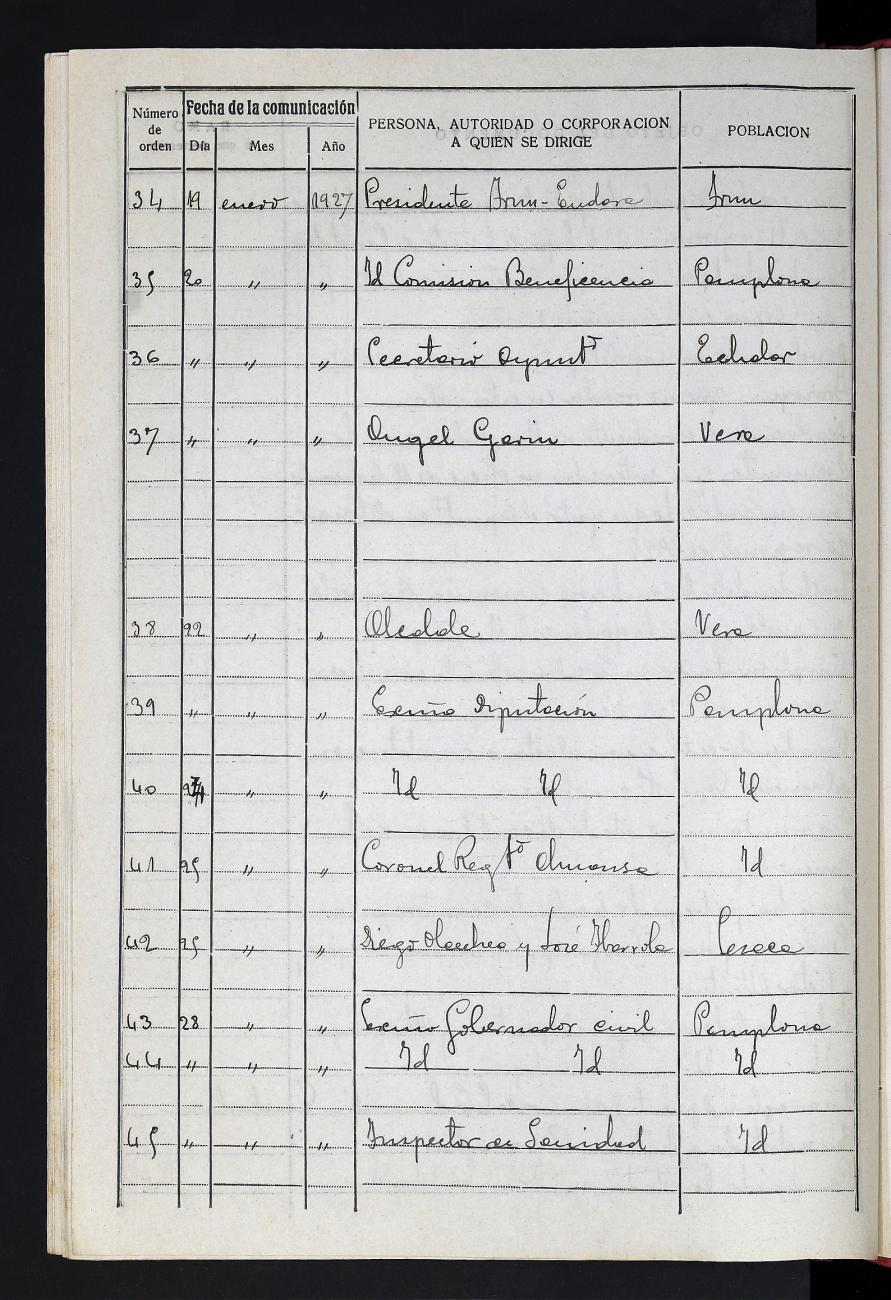 Número de orden Fecha de la comunicación Día Mes Año PERSONA, AUTORIDAD O CORPORACION A QUIEN SE DIRIGE POBLACION
34 19 enero 1927 Presidente Irun-Endara Irun
35 20 " " Id Comision Beneficencia Pamplona
36 " " " Secretario Ayuntº Echalar
37 " " " Angel Garin Vera
38 22 " " Alcalde Vera
39 " " " Excma Diputación Pamplona
40 " " Id Id Id
41 25 " " Coronel Regtº Almansa Id
42 25 " " Diego y José Ibarrola Lesaca
43 28 " " Excmo Gobernador civil Pamplona
44 " " " Id Id Id
45 " " " Inspector de Sanidad Id